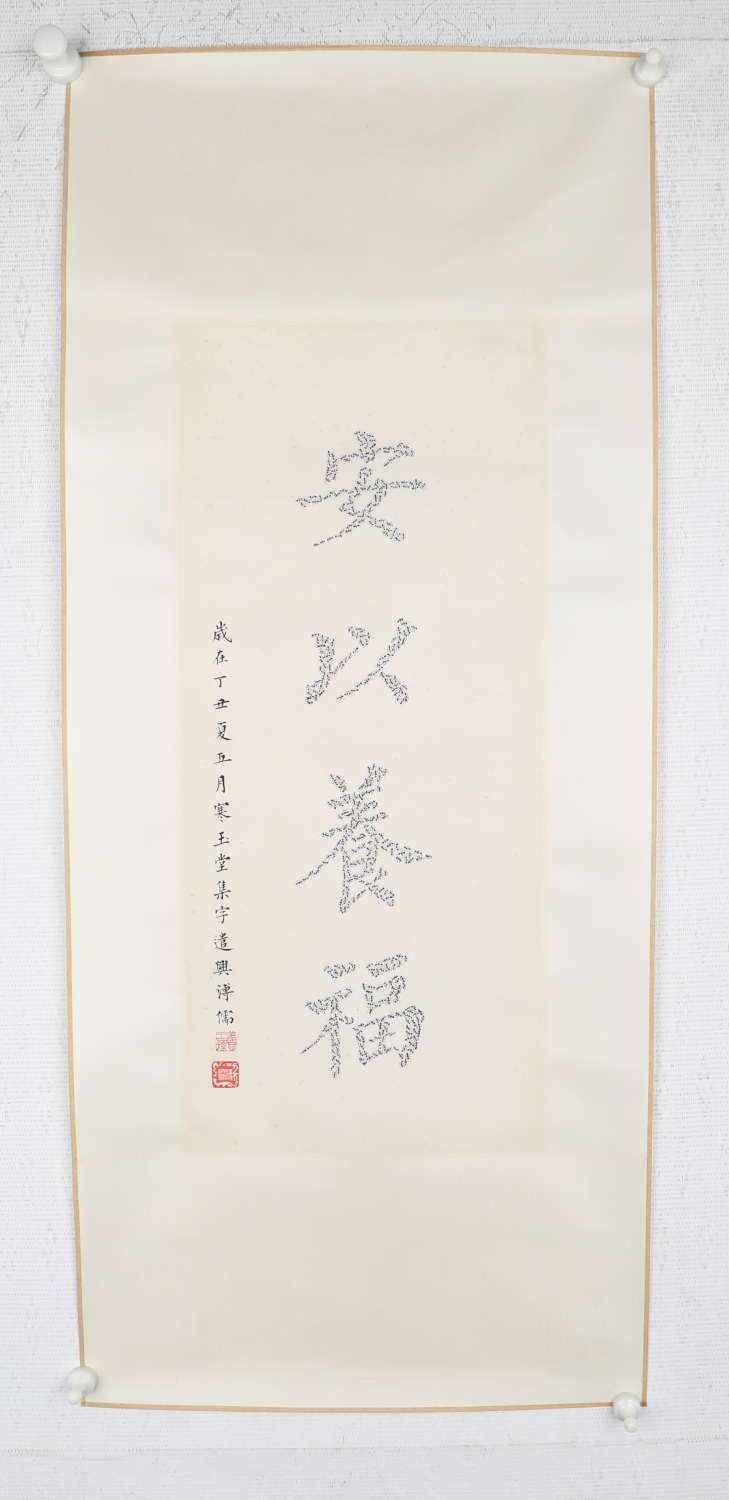 安以養福
歲在丁丑夏五月寒玉堂集字遣興溥儒